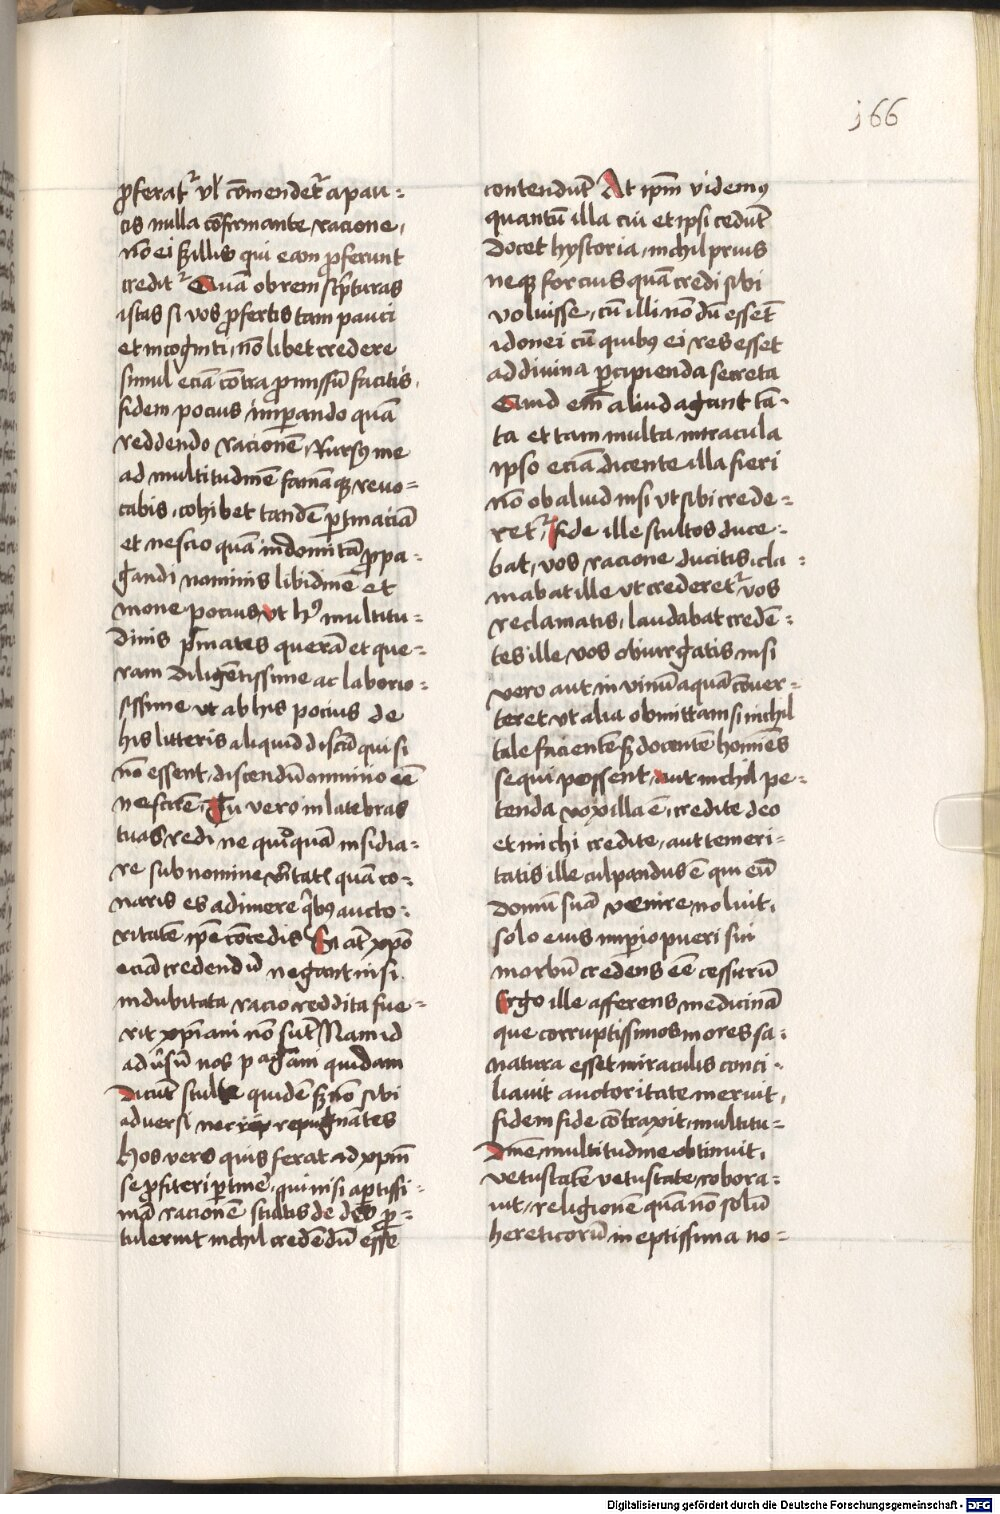 166
ꝓferat᷑ vl̓ cōmendet᷑ a pau⸗
cis nulla cōfirmante racione,
nō ei sꝫ illis qui eam ꝓferunt
credit᷑ Quā obrem sc̓pturas
istas si vos ꝓfertis tam pauci
et incogniti, nō libet credere
simul eciā cōtra ꝓmissū facitis,
fidem pocius imꝑando quā
reddendo racionē, Rursꝰ me
ad multitudinē famāqꝫ reuo⸗
cabis, cohibet tandē ꝑtinaciā
et nescio quā indomitā ꝓpa⸗
gandi nominis libidinē et
mone pocius vt hꝰ multitu⸗
dinis p̓mates querā et que⸗
ram diligētissime ac laborio⸗
sissime vt ab his pocius de
his litteris aliquid discā qui si
nō essent, discendū omnino eē
nescirē, Tu vero in latebras
tuas redi ne quicquā insidia⸗
re sub nomine v̓itatꝭ quā co⸗
naris es adimere qͥbꝰ aucto⸗
ritatē ip̄e cōcedis Si at̄ xp̄o
eciā credendū negant nisi
indubitata racio reddita fue⸗
rit xp̄iani nō sūt Nam id
adu̓sū nos pagani quidam
dicūt stulte quidē sꝫ nō sibi
adversi nec repugnātes
Hos vero quis ferat ad xp̄m
se ꝓfiteri ꝑtinē, qui nisi aꝑtissi⸗
mā racionē stultis de deo ꝓ⸗
tulerint nichil credēdū esse
contendūt At ip̄m videmꝰ
quantū illa cui et ipsi cedūt
docet hystoria, nichil prius
neqꝫ forcius quā credi sibi
voluisse, cū illi nō dū essēt
idonei cū quibꝰ ei res esset
ad divina ꝑcipienda secreta
Quid em̄ aliud agant tā⸗
ta et tam multa miracula
ipso eciā dicente illa fieri
nō ob aliud nisi vt sibi crede⸗
ret᷑, fide ille stultos duce⸗
bat, vos racione ducitis, cla⸗
mabat ille vt crederet᷑ vos
reclamatis, laudabat credē⸗
tes ille vos obiurgatis nisi
vero aut in vinū aquā cōver⸗
teret vt alia obmittam si nichil
tale facientē sꝫ docentē homīes
sequi possent, aut nichil pe⸗
tenda vox illa ē, credite deo
et michi credite, aut temeri⸗
tatis ille culpandus ē qui eū
domū suā venire noluit,
solo eius imꝑio pueri sui
morbū credens eē cessurū
Ergo ille afferens medicinā
que corruptissimos mores sa⸗
natura esset miraculis conci⸗
liauit auctoritatē meruit,
fidem fide cōtraxit, multitu⸗
dinē multitudine obtinuit,
vetustatē vetustate, robora⸗
uit, religionē quā nō solū
hereticorū ineptissima no⸗
Digitalisierung gefördert durch die Deutsche Forschungsgemeinschaft - DFG